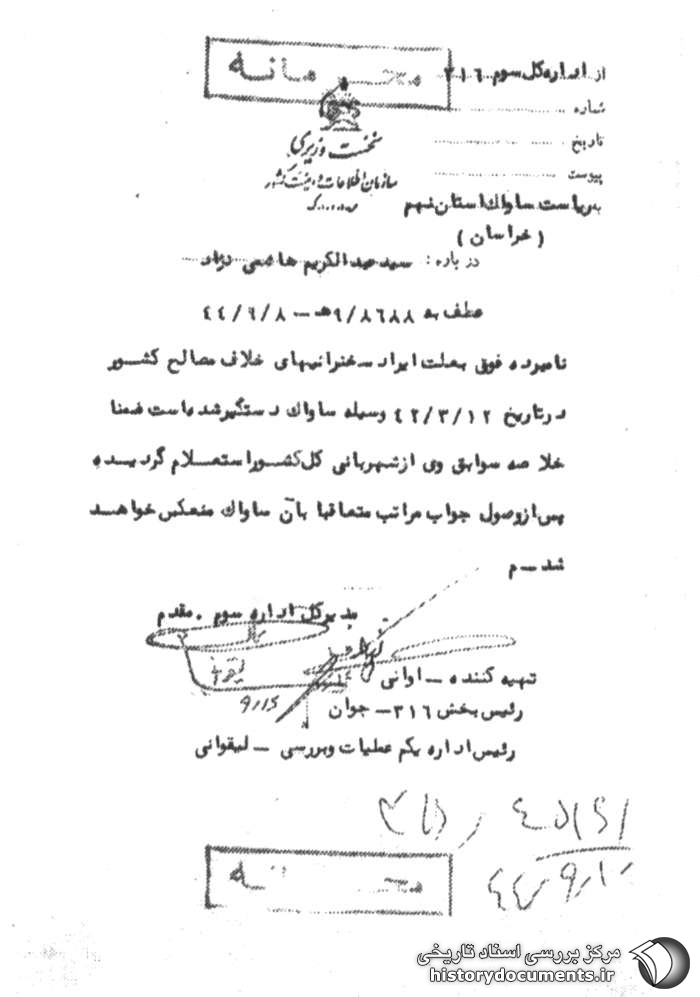 محرمانه
از اداره کل سوم ۳۱۶
شماره
تاریخ
پیوست
نخست وزیری
سازمان اطلاعات و امنیت کشور
س.ا.و.ا.ک
به ریاست ساواک استان نهم
(خراسان)
درباره: سید عبدالکریم هاشمی نژاد
عطف به ۹/۸۶۸۸هـ - ۴۴/۶/۸
نامبرده فوق بعلت ایراد سخنرانیهای خلاف مصالح کشور
در تاریخ ۴۲/۳/۱۲ وسیله ساواک دستگیر شده است ضمنا
خلاصه سوابق وی از شهربانی کل کشور استعلام گردیده
پس از وصول جواب مراتب متعاقبا بآن ساواک منعکس خواهد
شد - م
مدیر کل اداره سوم . مقدم
تهیه کننده - اوانی
رئیس بخش ۳۱۶ - جوان
رئیس اداره یکم عملیات و بررسی - لیقوانی
محرمانه
مرکز بررسی اسناد تاریخی
historydocuments.ir